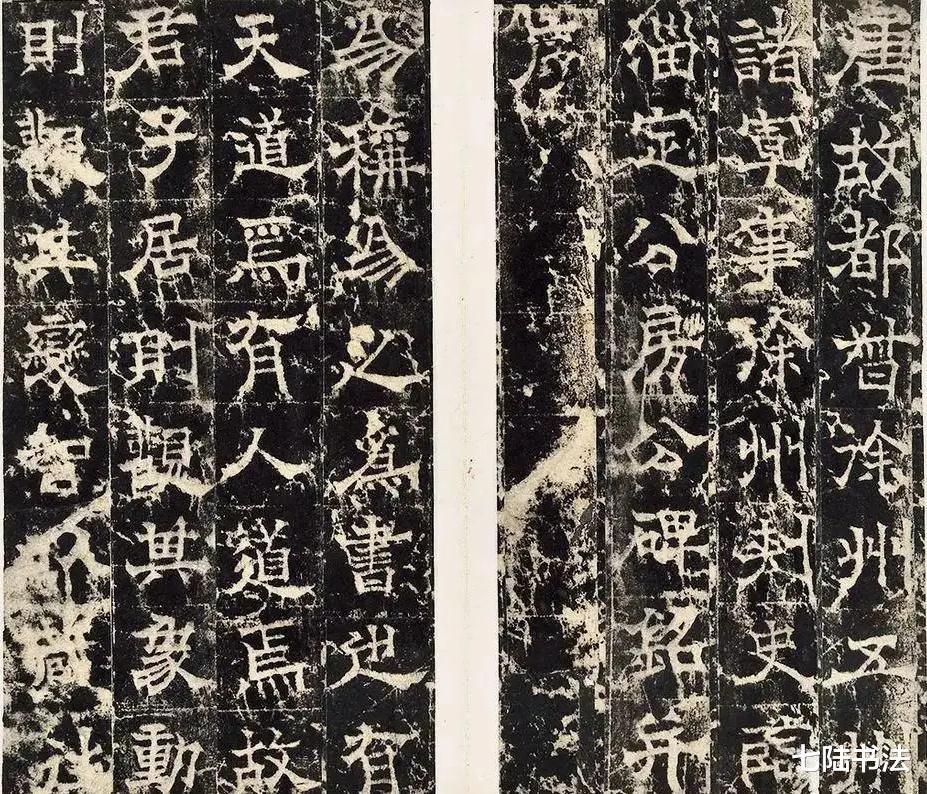 唐故都督徐州五州
諸軍事徐州刺史臨
淄定公房公碑銘并
序
易稱易之為書也有
天道焉有人道焉故
君子居則觀其象動
則觀其變智
七陆书法